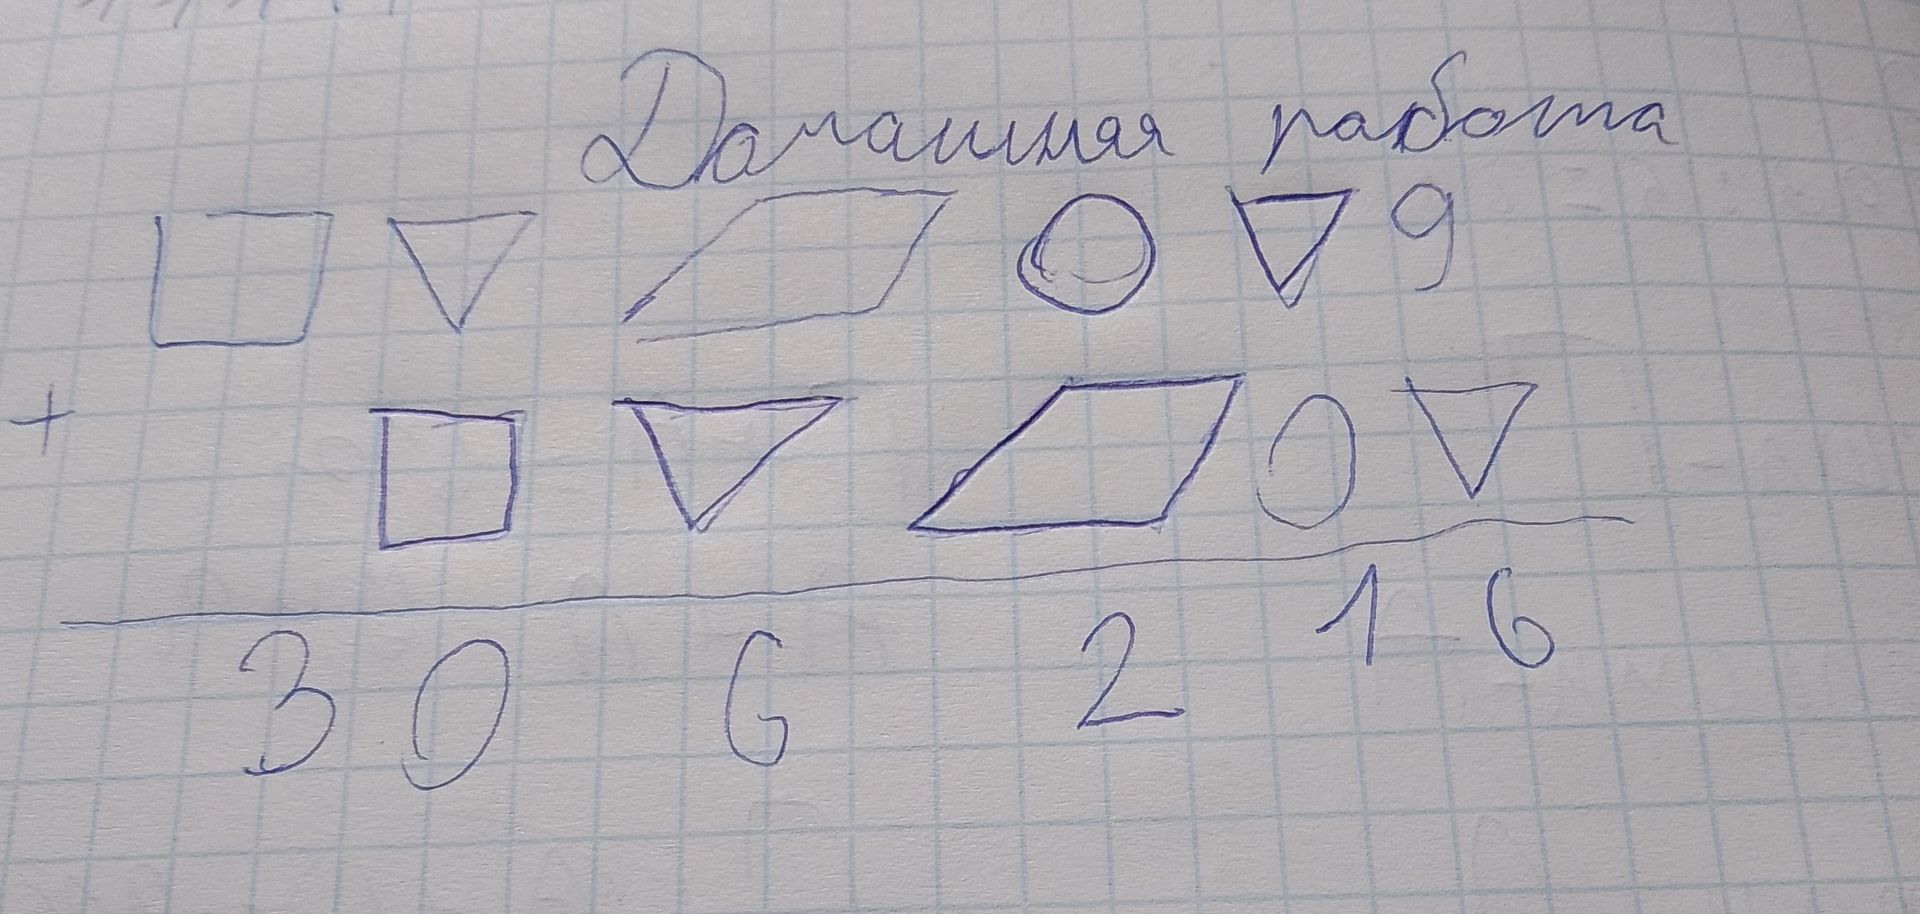 Домашняя работа
□ ▽ ▱ ○ ▽ 9
+
□ ▽ ▱ 0 ▽
3 0 6 2 1 6